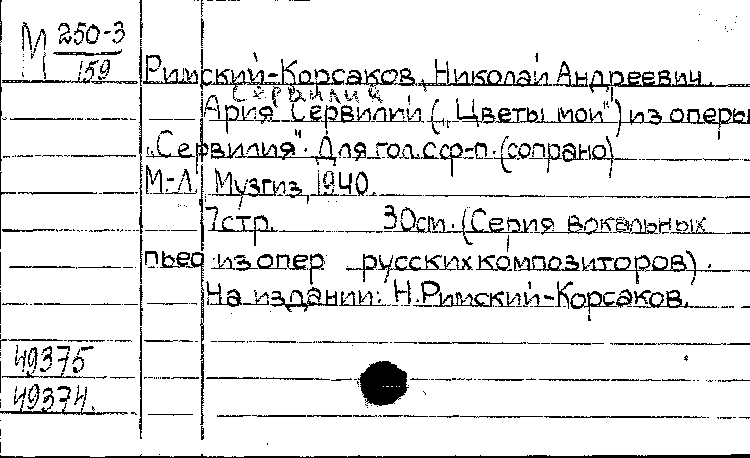 М 250-3
159
Римский-Корсаков, Николай Андреевич.
Сервилии
Ария Сервилии („Цветы мои") из оперы
„Сервилия". Для гол. с ф-п. (сопрано)
М-Л Музгиз, 1940.
7стр. 30cm. (Серия вокальных
пьес из опер русских композиторов).
На издании: Н.Римский-Корсаков.
49375
49374.